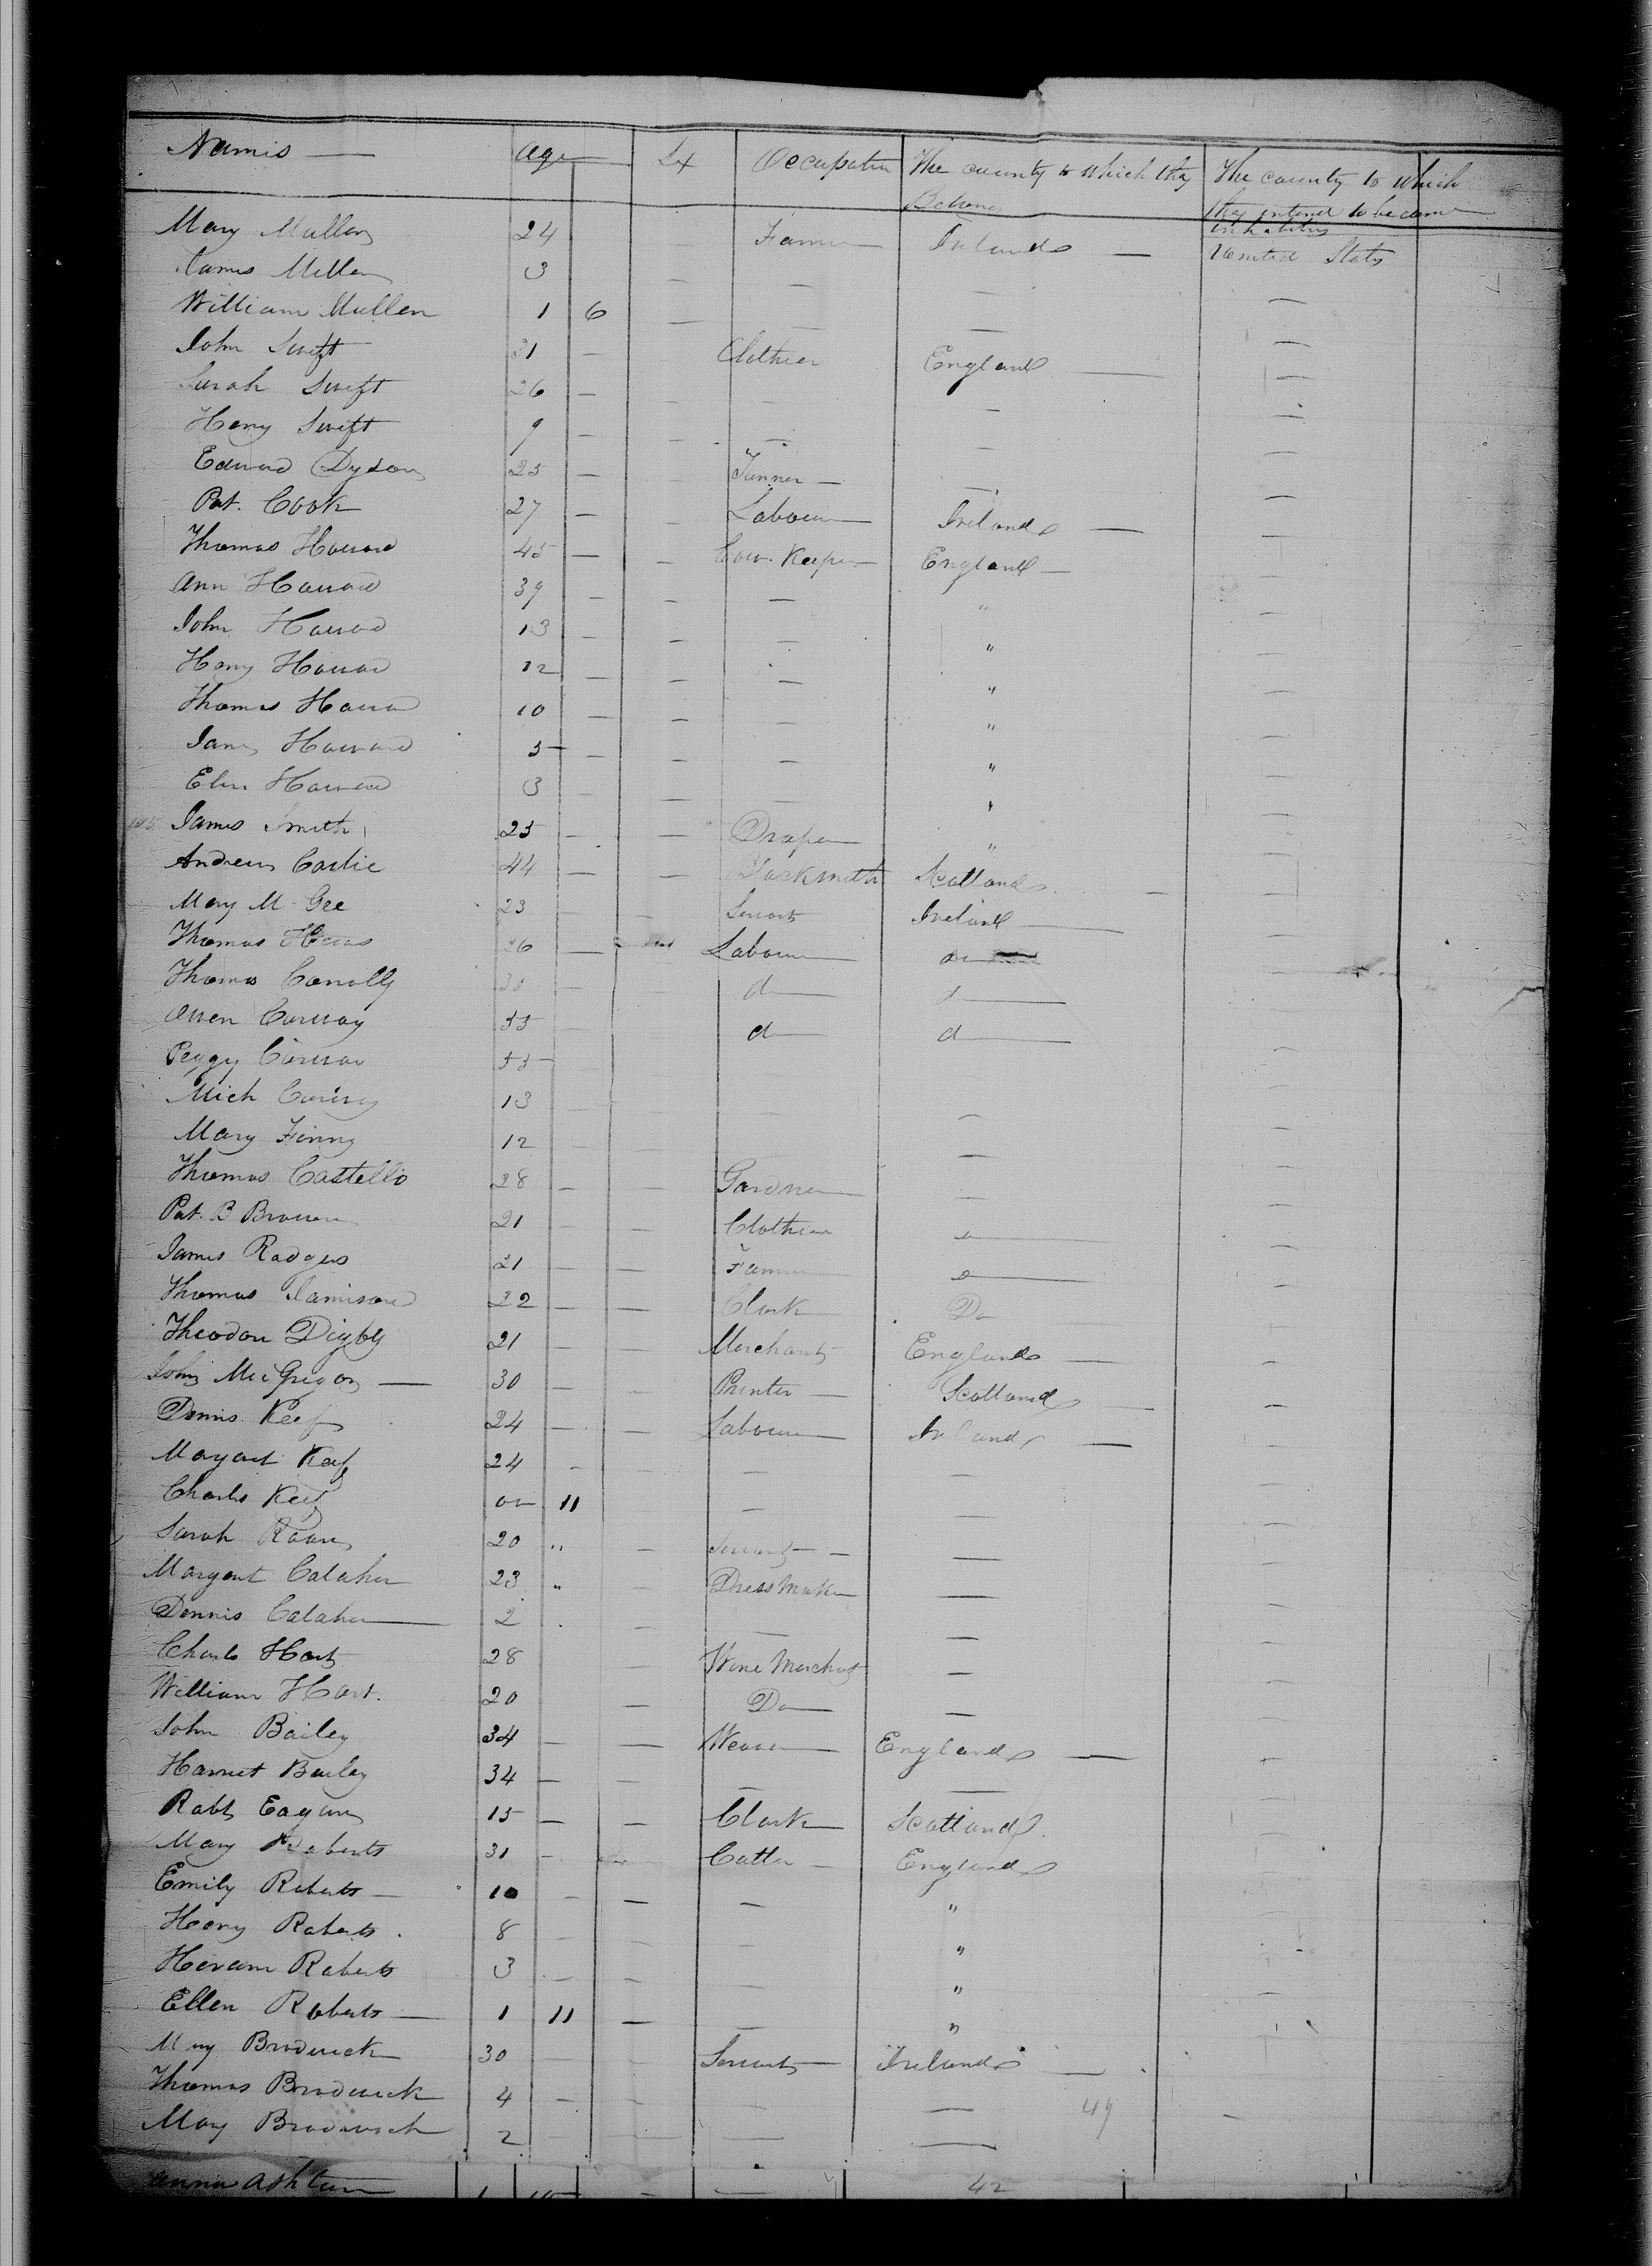 Names — Age Sex Occupation The county to which they Belong The county to which they intend to become inhabitus
Mary Mullen 24 Farmer Ireland — United States
James Mullen 3 — — — —
William Mullen 1 6 — — — —
John Swift 31 — Clothier England — —
Sarah Swift 26 — — — — —
Henry Swift 9 — — — — —
Edward Dyson 25 — Tanner — — —
Pat. Cook 27 — — Labourer Ireland — —
Thomas Howard 45 — — Cow Keeper England — —
Ann Howard 39 — — — " —
John Howard 13 — — — " —
Henry Howard 12 — — — " —
Thomas Howard 10 — — — " —
James Howard 5 — — — " —
Ellen Howard 3 — — — " —
James Smith 25 — — Draper " —
Andrew Carlie 44 — — Blacksmith Scotland — —
Mary McGee 23 — — Servant Ireland — —
Thomas 36 — Labourer do —
Thomas Conolly 30 — d— d— —
Owen Conway 55 — d— d— —
Peggy Conway 55 — —
Mich Conway 13 — — — —
Mary Finny 12 — — — —
Thomas Castello 28 — — Gardner — —
Pat. B Brown 21 — — Clothier —
James Rodgers 21 — — Farmer —
Thomas Jamison 22 — — Clark Do —
Theodore Digby 21 — — Merchant England — —
John McGregor — 30 — — Printer — Scotland — —
Dennis Keef 24 — — Labourer Ireland — —
Margaret Keef 24 — — — — —
Charles Keef 11 — — —
Sarah 20 " — Servant — — —
Margaret Calaher 23 " — Dress Maker — —
Dennis Calaher — 2 — — — —
Charles Hart 28 — Wine Merchant — —
William Hart. 20 — Do — —
John Bailey 34 — — Weaver England — —
Harriet Bailey 34 — — — — —
Robt Eagan 15 — — Clark Scotland —
Mary Roberts 31 — Cutler — England —
Emily Roberts — 10 — — — " —
Henry Roberts 8 — — — " —
Hiram Roberts 3 — — — " —
Ellen Roberts — 1 11 — — " —
Mary Broderick 30 — — Servant Ireland — —
Thomas Broderick 4 — — — — 49
Mary Broderick 2 — — — — —
Anna Ashton — — 42